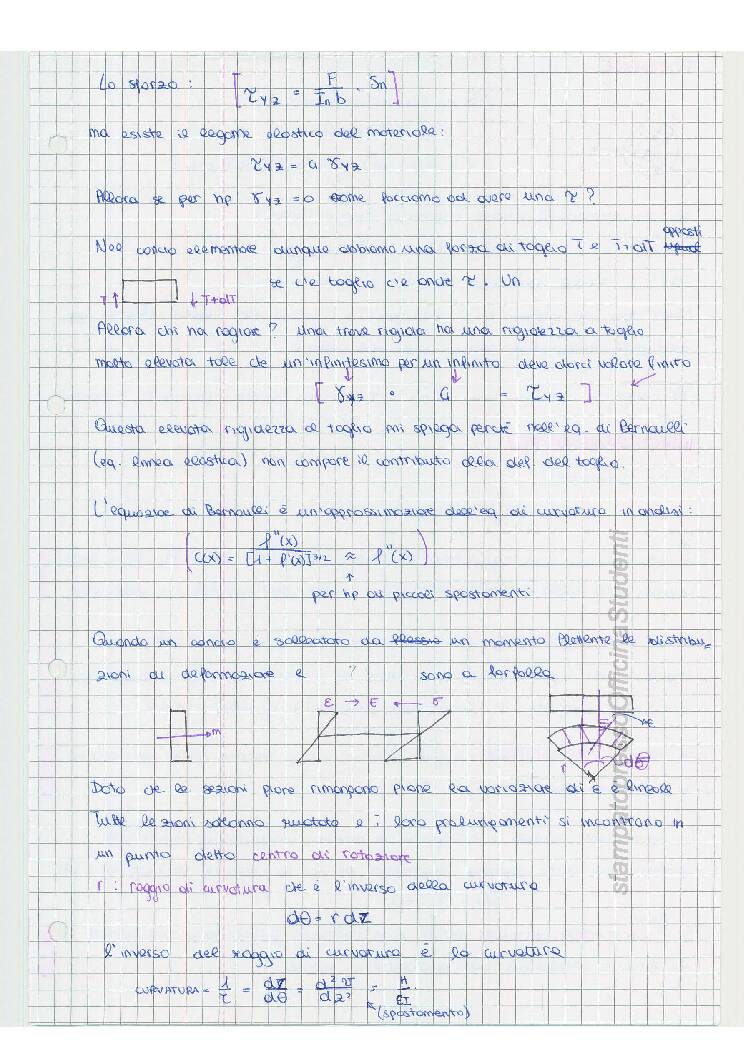 Lo sforzo : [ τyz = F / In b · Sn ]
ma esiste il legame elastico del materiale:
τyz = G γyz
Allora se per hp γyz = 0 come facciamo ad avere una τ ?
Nel concio elementare dunque abbiamo una forza di taglio T e T+dT opposti
T↑ ↓T+dT se c'è taglio c'è anche τ. Un
Allora chi ha ragione? Una trave rigida ha una rigidezza a taglio
molto elevata tale che un'infinitesimo per un infinito deve darci valore finito
[ γyz · G = τyz ]
Questa elevata rigidezza al taglio mi spiega perché nell'eq. di Bernoulli
(eq. linea elastica) non compare il contributo della def. del taglio.
L'equazione di Bernoulli è un'approssimazione dell'eq. di curvatura in analisi:
( C(x) = f''(x) / [1+ f'(x)]^3/2 ≈ f''(x) )
per hp di piccoli spostamenti
Quando un concio è sollecitato da un momento flettente le distribu-
zioni di deformazione e ? sono a farfalla
m ε → E ← σ r dθ
Dato che le sezioni piane rimangono piane la variazione di ε è lineare
Tutte le sezioni saranno ruotate e i loro prolungamenti si incontrano in
un punto detto centro di rotazione
r : raggio di curvatura che è l'inverso della curvatura
dθ = r dz
l'inverso del raggio di curvatura è la curvatura
CURVATURA = 1/r = dz/dθ = d²v/dz² = M/EI
(spostamento)
stampatopressoOfficinaStudenti